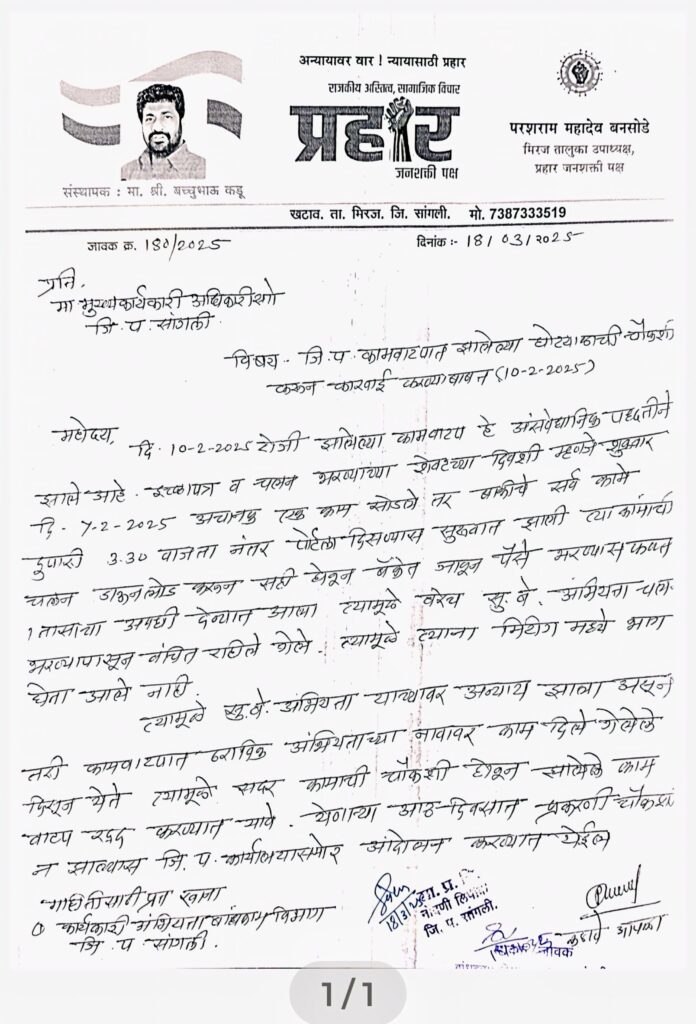 अन्यायावर वार ! न्यायासाठी प्रहार
राजकीय अस्तित्व, सामाजिक विचार
प्रहार
जनशक्ती पक्ष
संस्थापक : मा. श्री. बच्चुभाऊ कडू
परशराम महादेव बनसोडे
मिरज तालुका उपाध्यक्ष,
प्रहार जनशक्ती पक्ष
खटाव. ता. मिरज. जि. सांगली. मो. 7387333519
जावक क्र. 180/2025 दिनांक :- 18/03/2025
प्रति,
मा मुख्यकार्यकारी अधिकारीसो
जि प सांगली
विषय - जि.प. कामवाटपात झालेल्या घोटाळ्याची चौकशी
करून कारवाई करण्याबाबत (10-2-2025)
महोदय,
दि. 10-2-2025 रोजी झालेल्या कामवाटप हे असंवेधानिक पध्दतीने
झाले आहे. इच्छापत्र व चलन भरण्याच्या शेवटच्या दिवशी म्हणजे शुक्रवार
दि. 7-2-2025 अचानक एक काम सोडले तर बाकीचे सर्व कामे
दुपारी 3.30 वाजता नंतर पोर्टला दिसण्यास सुरुवात झाली त्या कामाची
चलन डाऊनलोड करून सही घेवून बँकेत जावून पैसे भरण्यास फक्त
1 तासाचा अवधी देण्यात आला त्यामूळे बरेच सु.बे. अभियता चलन
भरण्यापासून वंचित राहीले गेले. त्यामूळे त्याना मिटींग मध्ये भाग
घेता आले नाही.
त्यामूळे सु.बे. अभियता याच्यावर अन्याय झाला असून
तरी कामवाटपात ठराविक अभियताच्या नावावर काम दिले गेलेले
दिसून येते त्यामूळे सदर कामाची चौकशी होवून झालेले काम
वाटप रद्द करण्यात यावे. येणाऱ्या आठ दिवसात प्रकरणी चौकशी
न झाल्यास जि.प. कार्यालयासमोर आंदोलन करण्यात येईल
माहितीसाठी प्रत रवाना
कार्यकारी अभियता बांधकाम विभाग
जि प सांगली.
18/3/25
जि. प. सांगली.
जावक
कळावे आपला
1/1